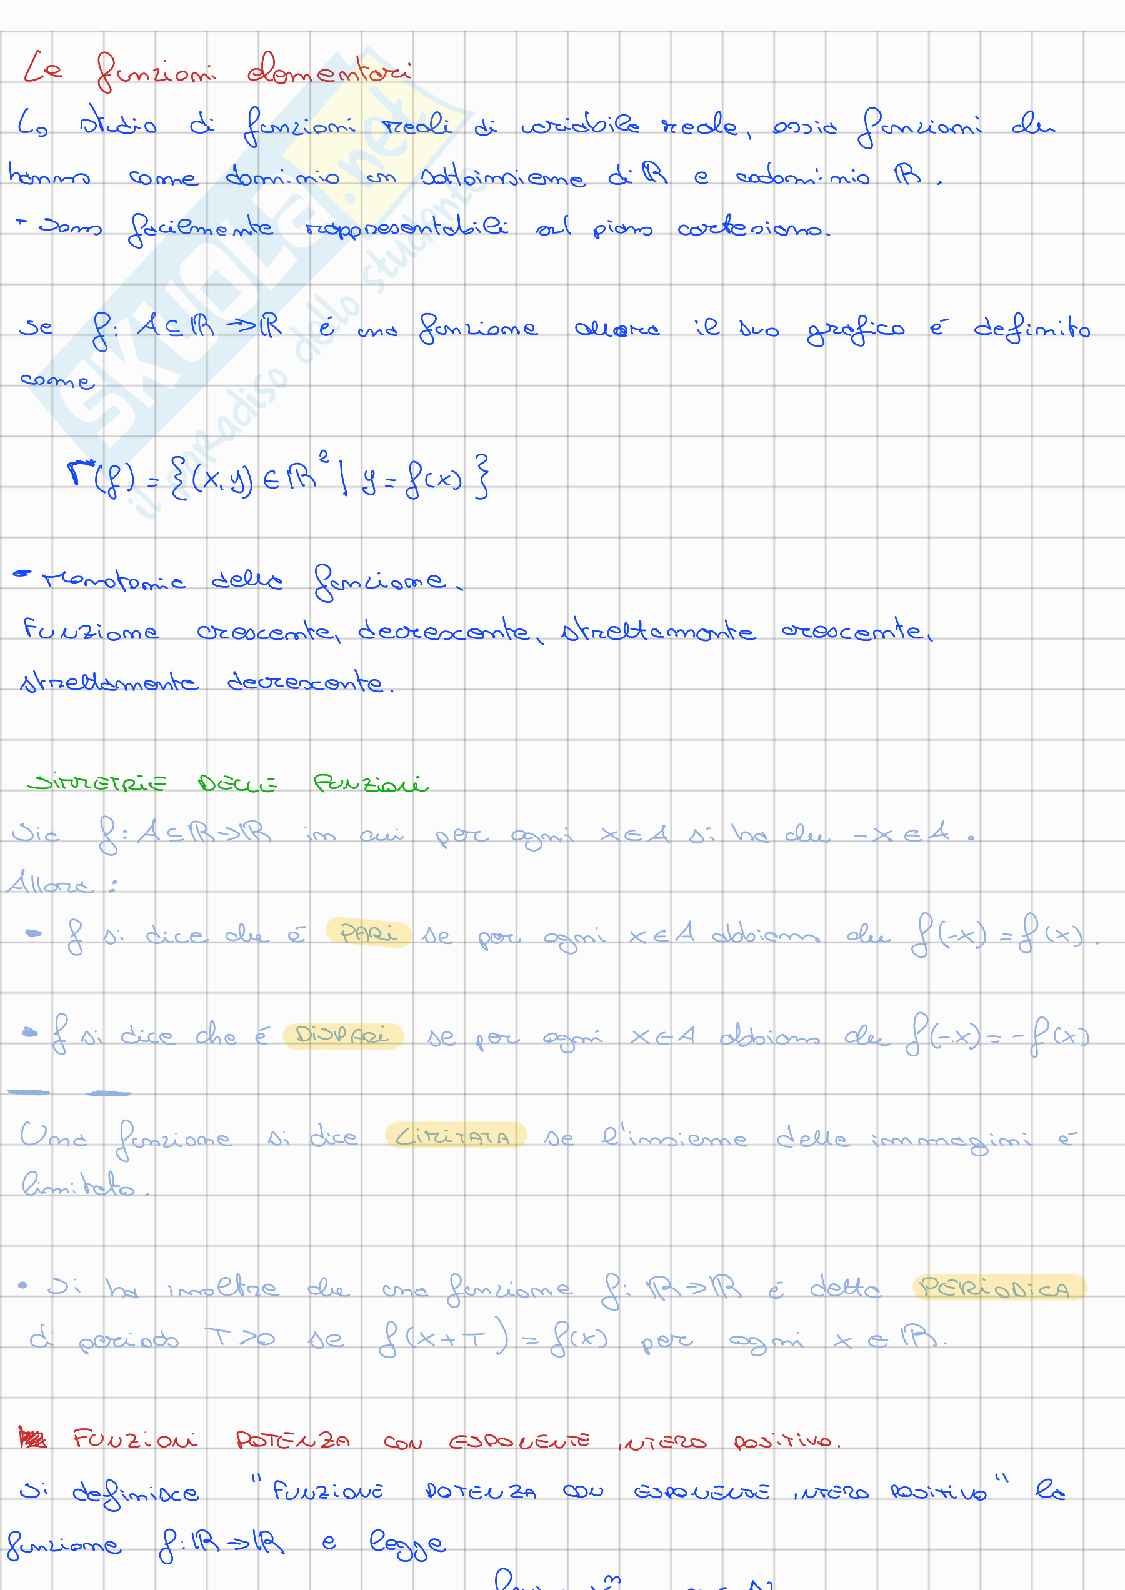 Le funzioni elementari
Lo studio di funzioni reali di variabile reale, ossia funzioni che
hanno come dominio un sottoinsieme di ℝ e codominio ℝ.
- sono facilmente rappresentabili sul piano cartesiano.
se f: A⊆ℝ→ℝ é una funzione allora il suo grafico é definito
come
Γ(f) = {(x,y) ∈ ℝ² | y = f(x)}
- Monotonia della funzione.
Funzione crescente, decrescente, strettamente crescente,
strettamente decrescente.
SIMMETRIE DELLE FUNZIONI
Sia f: A⊆ℝ→ℝ in cui per ogni x∈A si ha che -x∈A.
Allora:
- f si dice che é PARI se per ogni x∈A abbiamo che f(-x)=f(x).
- f si dice che é DISPARI se per ogni x∈A abbiamo che f(-x)=-f(x)
Una funzione si dice LIMITATA se l'insieme delle immagini é
limitato.
• Si ha inoltre che una funzione f: ℝ→ℝ é detta PERIODICA
di periodo T>0 se f(x+T)=f(x) per ogni x∈ℝ.
FUNZIONI POTENZA CON ESPONENTE INTERO POSITIVO.
Si definisce "FUNZIONE POTENZA CON ESPONENTE INTERO POSITIVO" la
funzione f:ℝ→ℝ e legge
SKUOLA.net
il paradiso dello studente